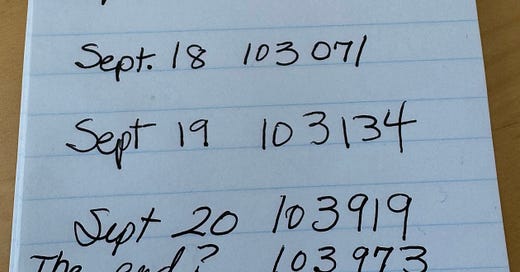 Sept. 18 103071
Sept 19 103134
Sept 20 103919
The end? 103973